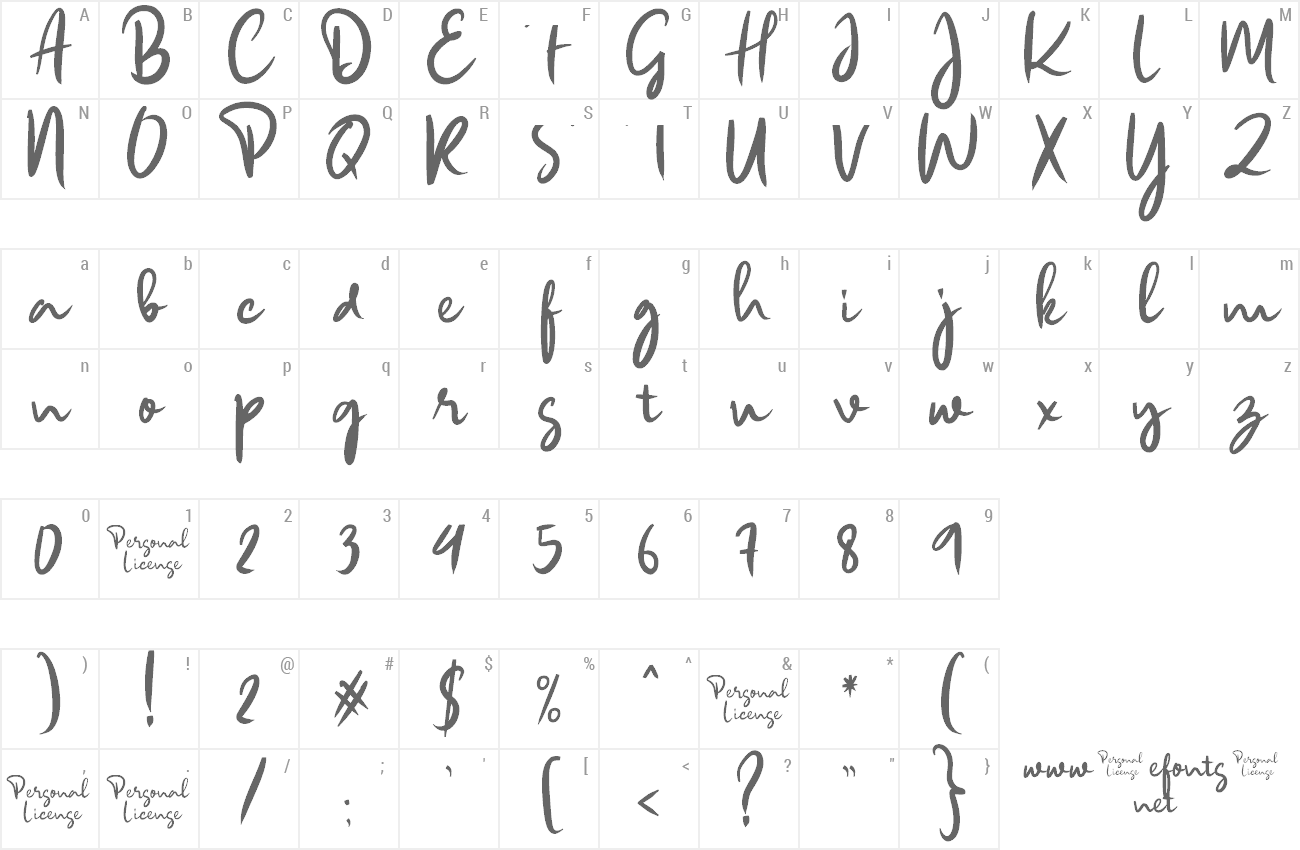 A B C D E F G H I J K L M
A B C D E F G H I J K L M
N O P Q R S T U V W X Y Z
N O P Q R S T U V W X Y Z
a b c d e f g h i j k l m
a b c d e f g h i j k l m
n o p q r s t u v w x y z
n o p q r s t u v w x y z
0 1 2 3 4 5 6 7 8 9
0 Personal License 2 3 4 5 6 7 8 9
) ! @ # $ % ^ & * (
) ! 2 # $ % ^ Personal License * (
, . / ; ' [ < ? " }
Personal License Personal License / ; ' [ < ? " }
www Personal License efonts Personal License
net